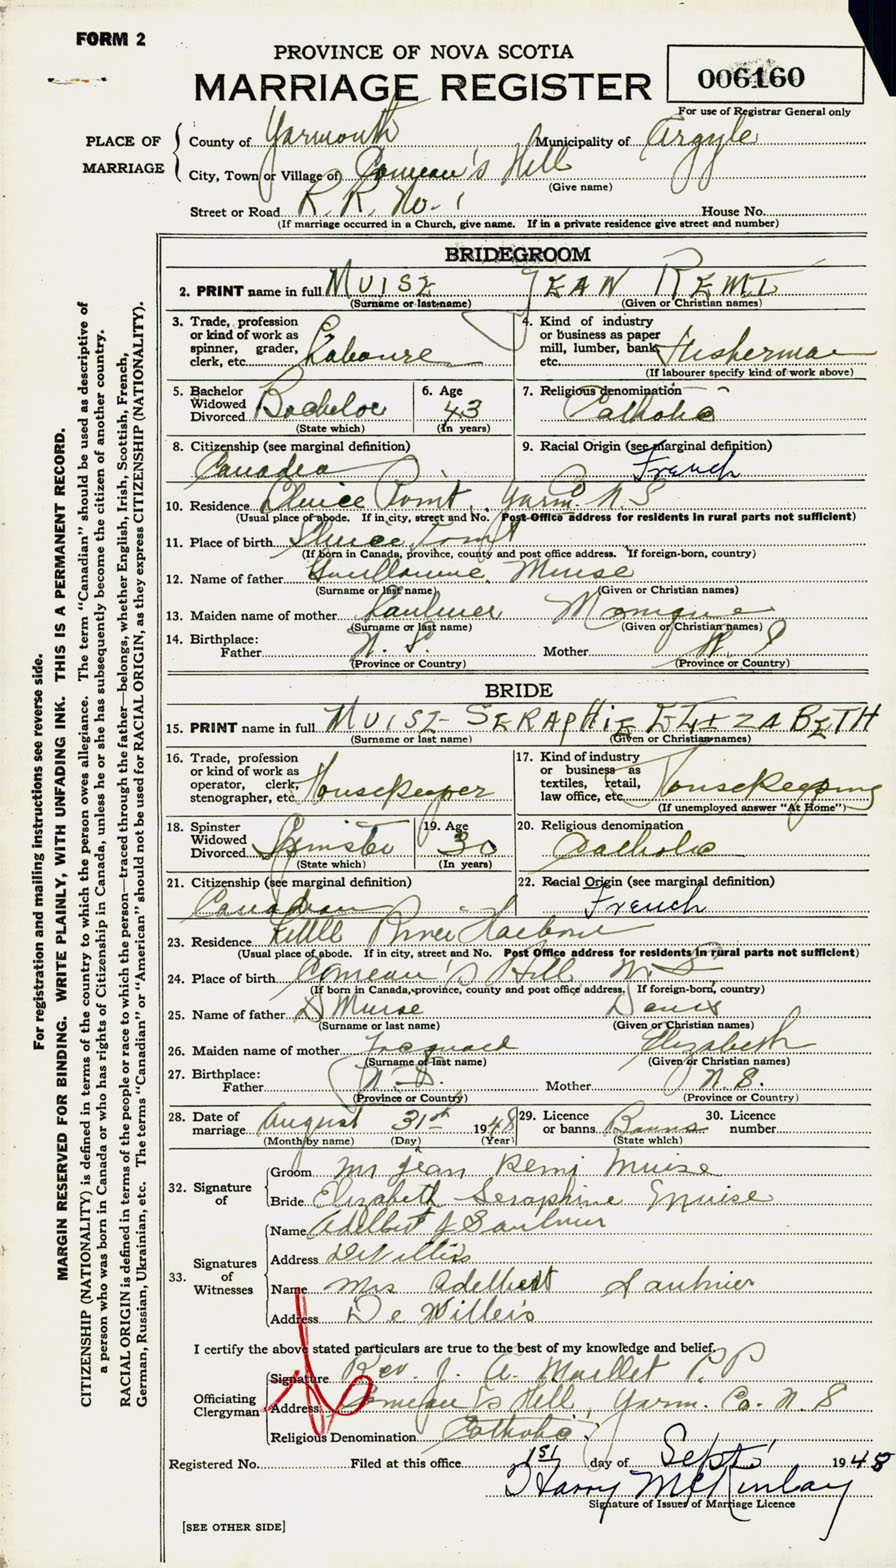 FORM 2
PROVINCE OF NOVA SCOTIA
MARRIAGE REGISTER
006160
For use of Registrar General only
PLACE OF MARRIAGE
County of Yarmouth Municipality of Argyle
City, Town or Village of Comeau's Hill
(Give name)
Street or Road R. R. No. 1 House No.
(If marriage occurred in a Church, give name. If in a private residence give street and number)
BRIDEGROOM
2. PRINT name in full MUISE JEAN REMI
(Surname or last name) (Given or Christian names)
3. Trade, profession or kind of work as spinner, grader, clerk, etc. Laboure
4. Kind of industry or business as paper mill, lumber, bank etc. Fisherman
(If labourer specify kind of work above)
5. Bachelor Widowed Divorced Bachelor
(State which)
6. Age 43
(In years)
7. Religious denomination Catholic
8. Citizenship (see marginal definition) Canadia
9. Racial Origin (see marginal definition) French
10. Residence Sluice Point, Yarm. N.S
(Usual place of abode. If in city, street and No. Post Office address for residents in rural parts not sufficient)
11. Place of birth Sluice Point
(If born in Canada, province, county and post office address. If foreign-born, country)
12. Name of father Guillaume Muise
(Surname or last name) (Given or Christian names)
13. Maiden name of mother Saulnier Monique
(Surname or last name) (Given or Christian names)
14. Birthplace:
Father N. S. Mother N. S
(Province or Country) (Province or Country)
BRIDE
15. PRINT name in full MUISE SERAPHIE ELIZABETH
(Surname or last name) (Given or Christian names)
16. Trade, profession or kind of work as operator, clerk, stenographer, etc. Housekeeper
17. Kind of industry or business as textiles, retail, law office, etc. Housekeeping
(If unemployed answer "At Home")
18. Spinster Widowed Divorced Spinster
(State which)
19. Age 30
(In years)
20. Religious denomination Catholic
21. Citizenship (see marginal definition) Canadian
22. Racial Origin (see marginal definition) French
23. Residence Little River Harbour
(Usual place of abode. If in city, street and No. Post Office address for residents in rural parts not sufficient)
24. Place of birth Comeau's Hill N. S
(If born in Canada, province, county and post office address. If foreign-born, country)
25. Name of father Muise Denis
(Surname or last name) (Given or Christian names)
26. Maiden name of mother Jacquard Elizabeth
(Surname or last name) (Given or Christian names)
27. Birthplace:
Father N. S. Mother N. S.
(Province or Country) (Province or Country)
28. Date of marriage August 31st 1948
(Month by name) (Day) (Year)
29. Licence or banns Banns
(State which)
30. Licence number
32. Signature of
Groom Mr Jean Remi Muise
Bride Elizabeth Seraphine Muise
33. Signatures of Witnesses
Name Adelbert J Saulnier
Address DeWillis
Name Mrs Adelbert Saulnier
Address De Willers
I certify the above stated particulars are true to the best of my knowledge and belief.
Officiating Clergyman
Signature Rev. J. A. Maillet P. P
Address Comeau's Hill, Yarm. Co. N. S
Religious Denomination Catholic
Registered No. Filed at this office 1st day of Sept. 1948
Harry McKinlay
Signature of Issuer of Marriage Licence
[SEE OTHER SIDE]
For registration and mailing instructions see reverse side.
MARGIN RESERVED FOR BINDING. WRITE PLAINLY, WITH UNFADING INK. THIS IS A PERMANENT RECORD.
CITIZENSHIP (NATIONALITY) is defined in terms of the country to which the person owes allegiance. The term "Canadian" should be used as descriptive of
a person who was born in Canada or who has rights of Citizenship in Canada, unless he or she has subsequently become the citizen of another country.
RACIAL ORIGIN is defined in terms of the people or race to which the person—traced through the father—belongs, whether English, Irish, Scottish, French,
German, Russian, Ukrainian, etc. The terms "Canadian" or "American" should not be used for RACIAL ORIGIN, as they express CITIZENSHIP (NATIONALITY).